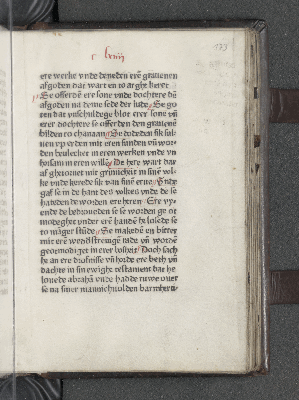 r lxiiij
173
ere werke vnde deneden erē grauenen
afgoden dat wart en to arghe keret
Se offerdē ere sone vnde dochtere dē
afgoden na deme sede der lude Se go
ten dat vnschuldege blot erer sone vn̄
erer dochtere se offerden den grauenē
bilden to chanaan Se besmitten sik sul
uen vp erden mit eren sunden vn̄ wor
den in eren werken vnde vn
in eren wille Vn̄ here wart dar
vp ghetornet mit grīmicheit in sine vol
ke vnde kerede sik van sinē erue Vn̄ he
gaf se in de hant der volken vnde de se
hateden de worden ere heren Ere vy
ende de bedroueden se se worden ge ot
modeghet vnder erē handē he losede se
to māger stūde Se makedē en bitter
mit erē wedderstreuīge rade vn̄ wordē
geotmodiget in erer bosheit Doch sach
he an ere drofnisse vn̄ horde ere beth vn̄
dachte in sin ewighe testament dat he
louede abrahā vnde hadde ruwe ouer
se na siner mannichuolden barmherti